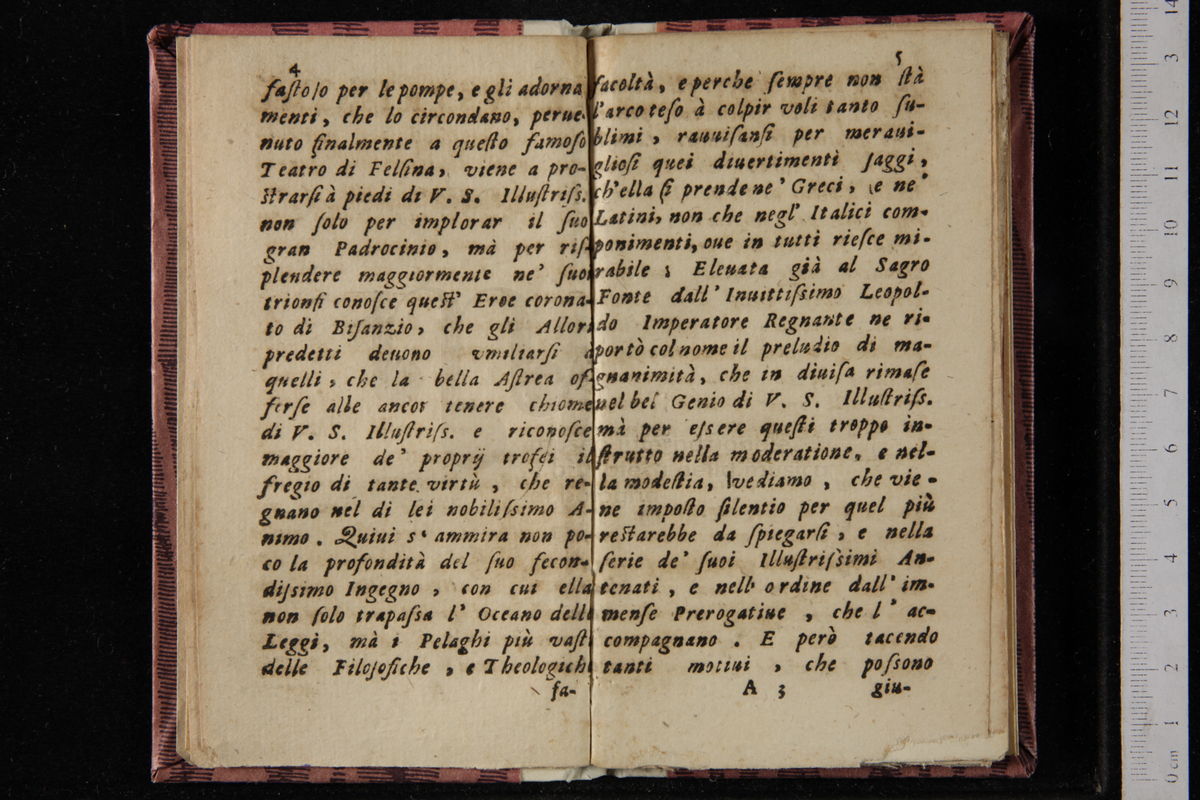 4
faſtoſo per le pompe, e gli adorna
menti, che lo circondano, perue-
nuto finalmente a queſto famoſo
Teatro di Felſina, viene a pro-
ſtrarſi à piedi di V. S. Illuſtriſs.
non ſolo per implorar il ſuo
gran Padrocinio, mà per riſ-
plendere maggiormente ne' ſuoi
trionfi conoſce queſt' Eroe corona-
to di Biſanzio, che gli Allori
predetti deuono vmiliarſi a
quelli, che la bella Aſtrea of-
ferſe alle ancor tenere chiome
di V. S. Illuſtriſs. e riconoſce
maggiore de' proprij trofei il
fregio di tante virtù, che re-
gnano nel di lei nobiliſsimo A-
nimo. Quiui s' ammira non po-
co la profondità del ſuo fecon-
diſsimo Ingegno, con cui ella
non ſolo trapaſsa l' Oceano delle
Leggi, mà i Pelaghi più vaſti
delle Filoſofiche, e Theologiche
fa-
5
facoltà, e perche ſempre non ſtà
l'arco teſo à colpir voli tanto ſu-
blimi, rauuiſanſi per meraui-
glioſi quei diuertimenti ſaggi,
ch'ella ſi prende ne' Greci, e ne'
Latini, non che negl' Italici com-
ponimenti, oue in tutti rieſce mi-
rabile; Eleuata già al Sagro
Fonte dall' Inuittiſsimo Leopol-
do Imperatore Regnante ne ri-
portò col nome il preludio di ma-
gnanimità, che in diuiſa rimaſe
nel bel Genio di V. S. Illuſtriſs.
mà per eſsere queſti troppo in-
ſtrutto nella moderatione, e nel-
la modeſtia, vediamo, che vie-
ne impoſto ſilentio per quel più
reſtarebbe da ſpiegarſi, e nella
ſerie de' ſuoi Illuſtriſsimi An-
tenati, e nell' ordine dall' im-
menſe Prerogatiue, che l' ac-
compagnano. E però tacendo
tanti motiui, che poſsono
A 3 giu-